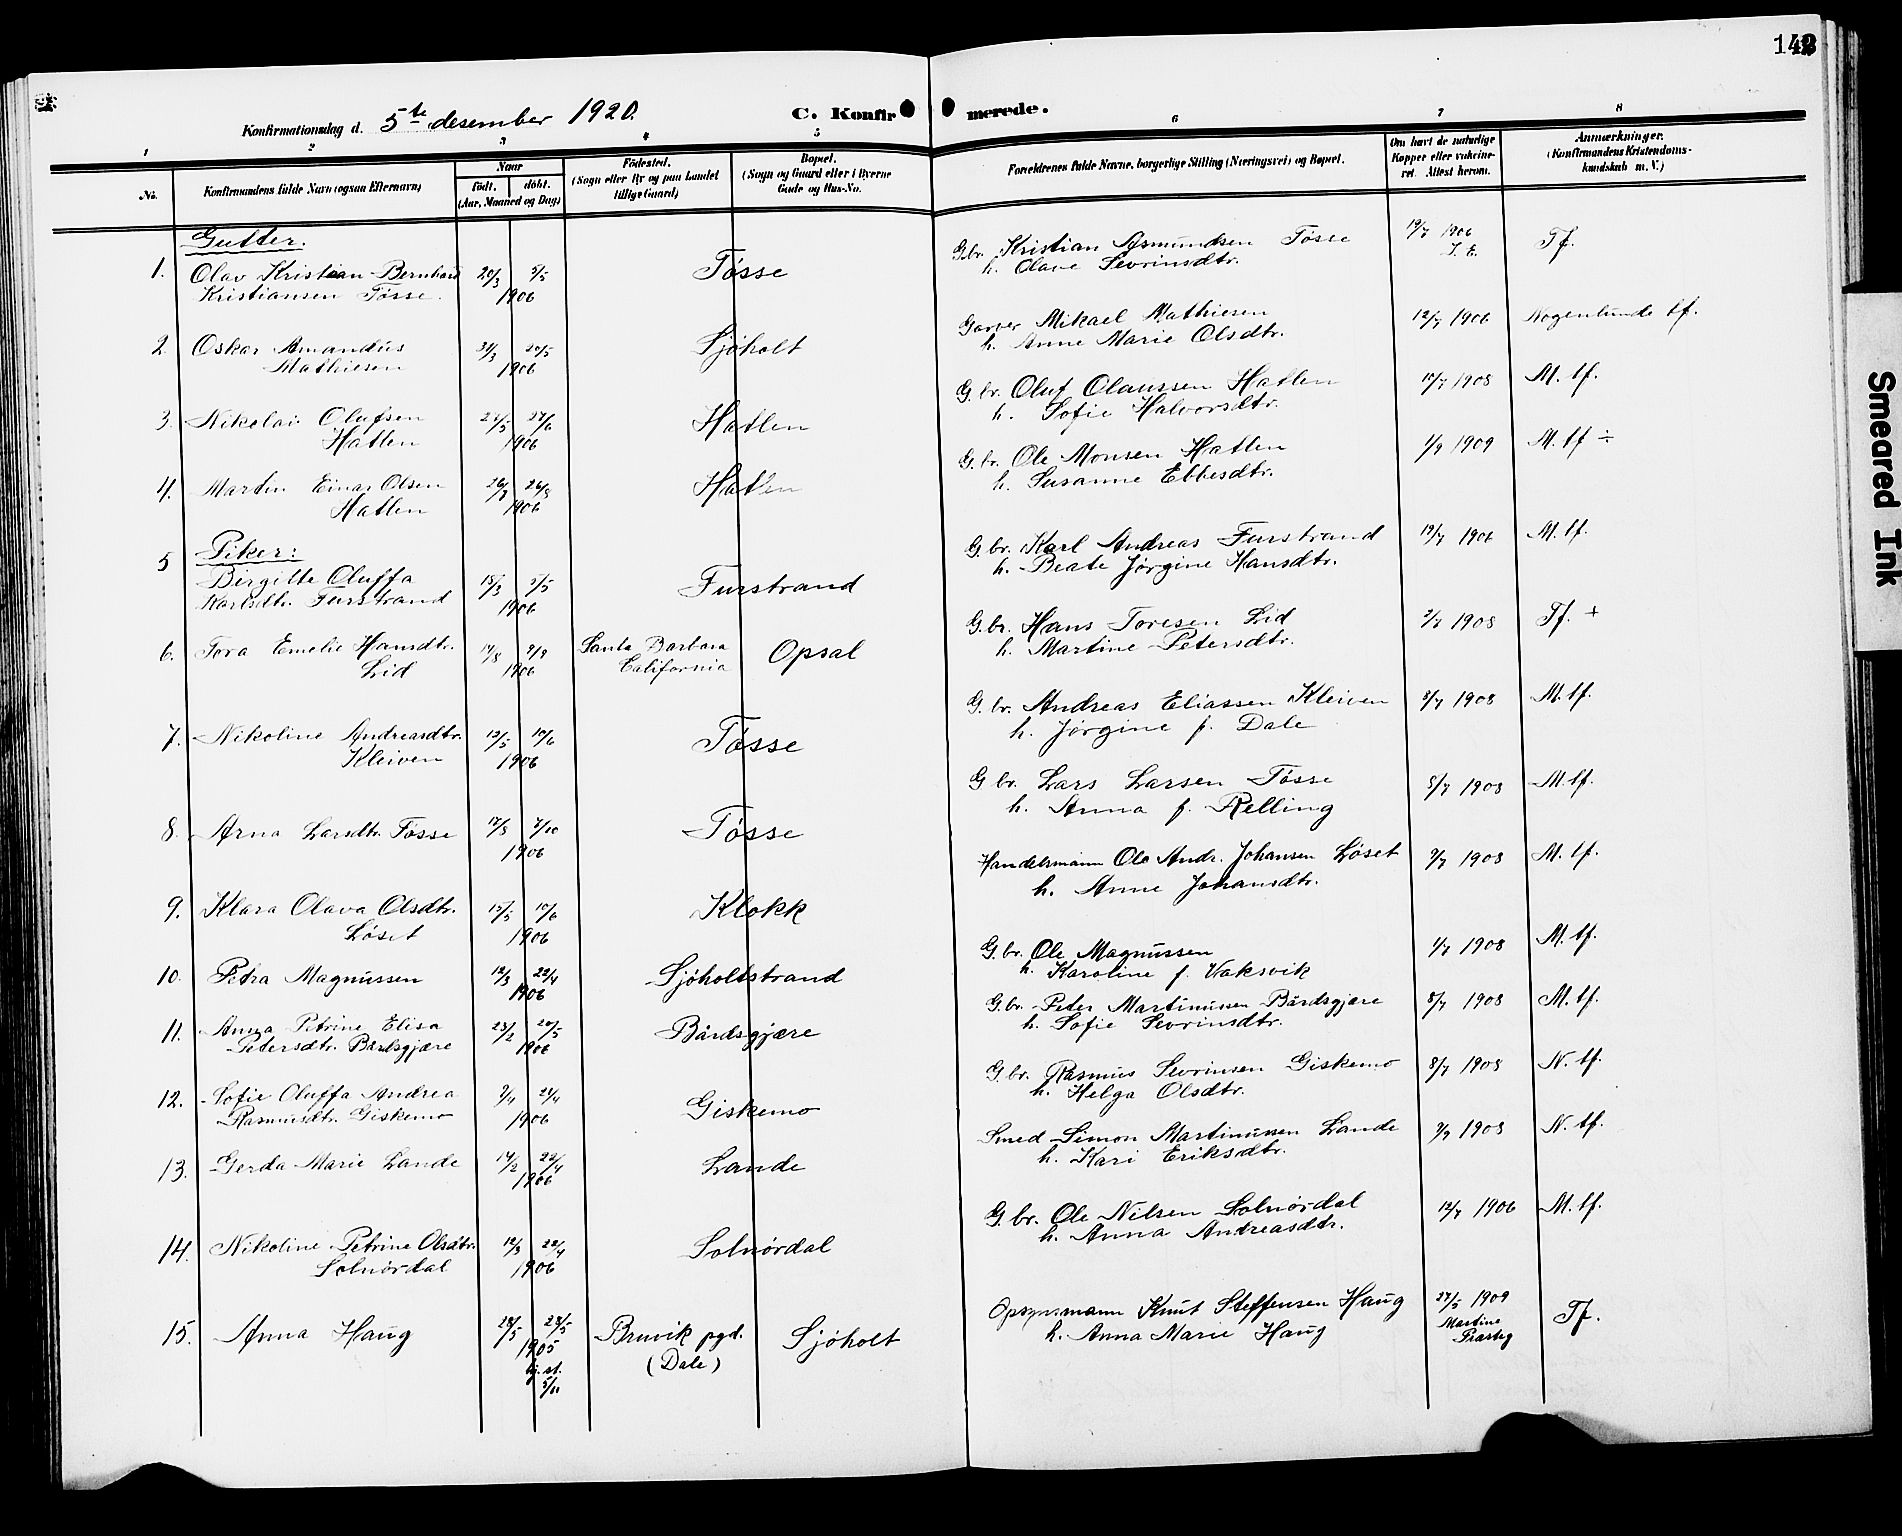 Konfirmationsdag d. 5te desember 1920.
C. Konfirmerede.
1 2 3 4 5 6 7 8
No.
Konfirmandens fulde Navn (ogsaa Efternavn)
Naar
født. døbt.
(Aar, Maaned og Dag)
Fødested.
(Sogn eller By og paa Landet
tillige Gaard)
Bopæl.
(Sogn og Gaard eller i Byerne
Gade og Hus-No.
Forældrenes fulde Navne, borgerlige Stilling (Næringsvei) og Bopæl.
Om havt de naturlige
Kopper eller vakcine-
ret. Attest herom.
Anmærkninger.
(Konfirmandens Kristendoms-
kundskab m. V.)
Gutter.
1. Olav Kristian Bernhard
Kristiansen Tösse.
20/3 5/5
1906
Tösse
G.br. Kristian Asmundsen Tösse
h. Olave Sevrinsdtr.
19/7 1906
Tf.
2. Oskar Amandus
Mathiesen
31/3 20/5
1906
Sjöholt
Garver Mikael Mathiesen
h. Anne Marie Olsdtr.
12/7 1906
Nogenlunde tf.
3. Nikolai Olufsen
Hatlen
24/6
1906
Hatlen
G. br. Oluf Olaussen Hatlen
h. Sofie Halvorsdtr.
10/7 1908
M. tf.
4. Martin Einar Olsen
Hatlen
26/7 26/8
1906
Hatlen
G. br. Ole Monsen Hatlen
h. Susanne Ebbesdtr.
1/9 1909
M. tf ÷
Piker:
5 Birgitte Oluffa
Karlsdtr. Furstrand
18/3 5/5
1906
Furstrand
G. br. Karl Andreas Furstrand
h. Beate Jörgine Hansdtr.
19/7 1906
M. tf.
6. Tora Emelie Hansdtr.
Lid
14/8 9/9
1906
Santa Barbara
California
Opsal
G. br. Hans Toresen Lid
h. Martine Petersdtr.
2/7 1908
Tf. +
7. Nikoline Andreasdtr.
Kleiven
12/5 10/6
1906
Tösse
G. br. Andreas Eliassen Kleiven
h. Jörgine f. Dale
8/7 1908
M. tf.
8. Arna Larsdtr. Tösse
17/8 7/10
1906
Tösse
G br. Lars Larsen Tösse
h. Anna f. Relling
8/7 1908
M. tf.
9. Klara Olava Olsdtr.
Löset
15/5 10/6
1906
Klokk
Handelsmann Ole Andr. Johansen Löset
h. Anne Johansdtr.
9/7 1908
M. tf.
10. Petra Magnussen
12/3 22/4
1906
Sjöholtstrand
G. br. Ole Magnussen
h. Karoline f. Vaksvik
1/7 1908
M. tf.
11. Anna Petrine Elisa
Petersdtr. Bårdsgjære
23/2 20/5
1906
Bårdsgjære
G. br. Peter Martinussen Bårdsgjære
h. Sofie Sevrinsdtr.
8/7 1908
M. tf.
12. Sofie Oluffa Andrea
Rasmusdtr. Giskemo
1906
Giskemo
G. br. Rasmus Sevrinsen Giskemo
h. Helga Olsdtr.
8/7 1908
N. tf.
13. Gerda Marie Lande
14/2 22/4
1906
Lande
Smed Simon Martinussen Lande
h. Kari Eriksdtr.
9/7 1908
N. tf.
14. Nikoline Petrine Olsdtr.
Solnördal
12/3 22/4
1906
Solnördal
G. br. Ole Nilsen Solnördal
h. Anna Andreasdtr.
12/7 1906
M. tf.
15. Anna Haug
28/5
1905
hj. st.
5/11
Bruvik pgd.
(Dale)
Sjöholt
Opsynsmann Knut Steffensen Haug
h. Anna Marie Haug
27/5 1909
Martine
Tf.
Smeared Ink